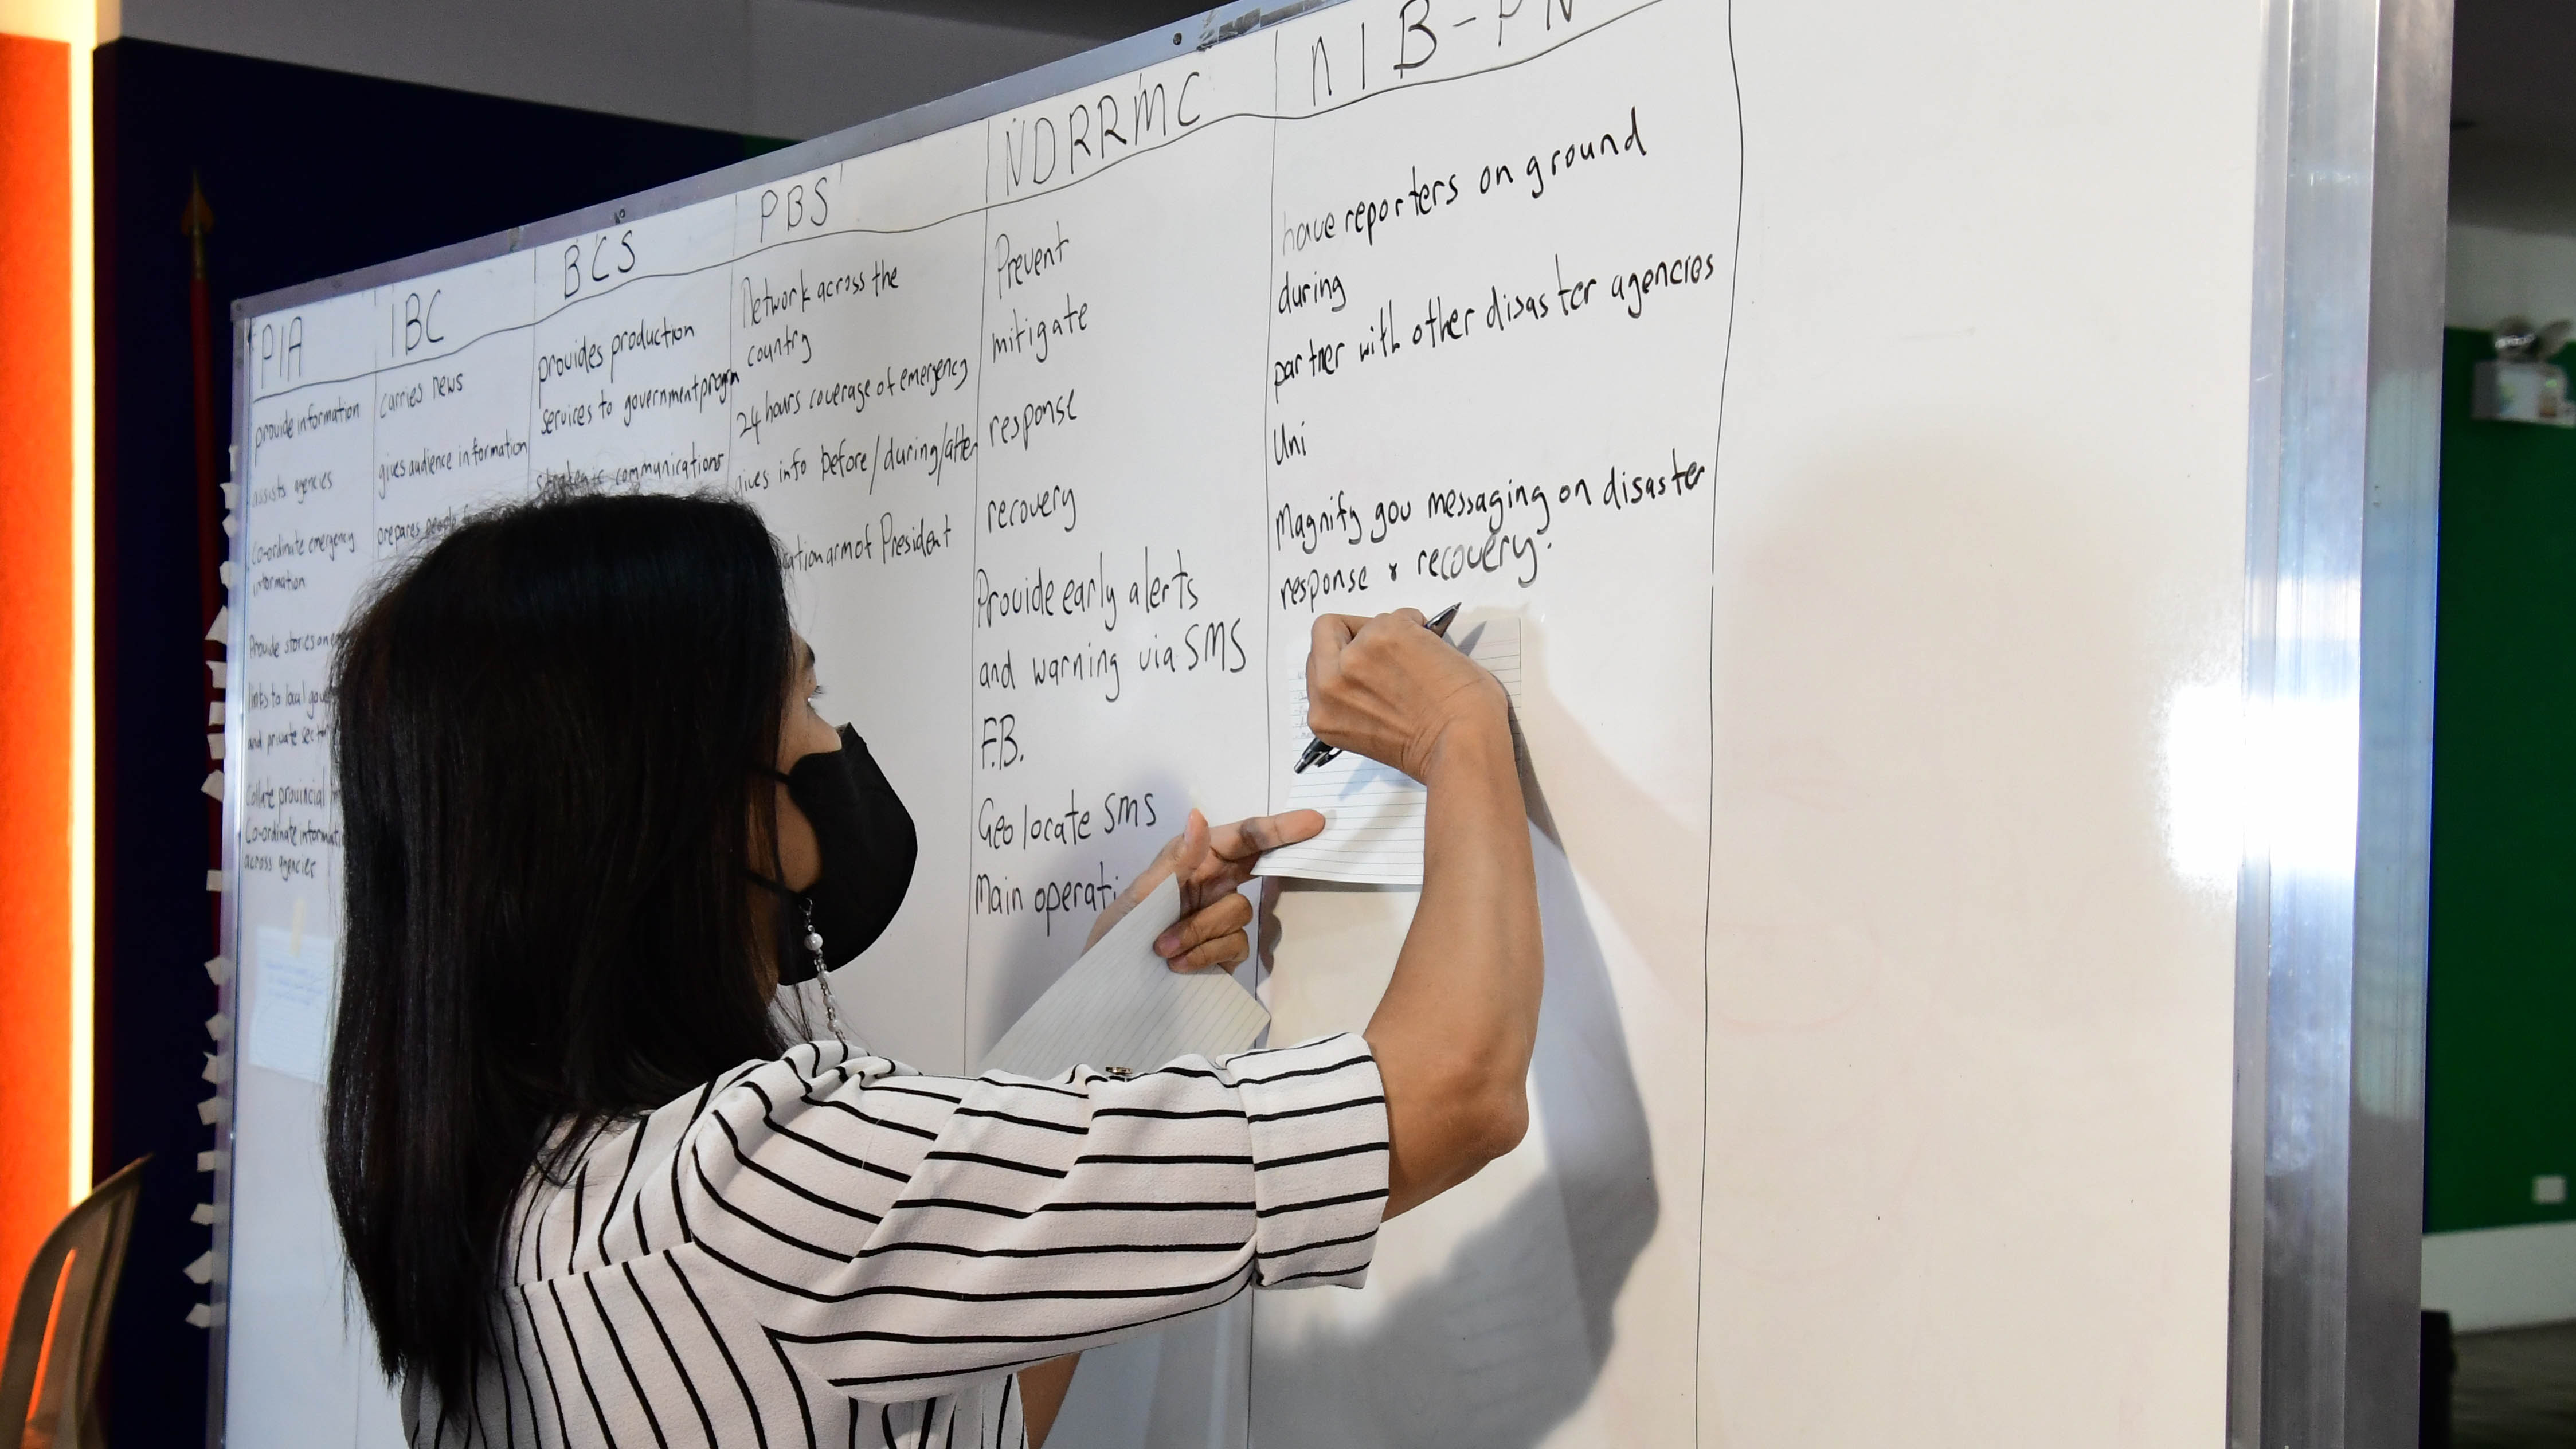 PIA
provide information
assists agencies
co-ordinate emergency
information
Provide stories on
links to local
and private
Collate provincial
Co-ordinate
across agencies
IBC
carries news
gives audience information
prepares people
BCS
provides production
services to government progrm
strategic communications
PBS
Network across the
country
24 hours coverage of emergency
gives info before/during/after
arm of President
NDRRMC
Prevent
mitigate
response
recovery
Provide early alerts
and warning via SMS
F.B.
Geo locate SMS
Main
NIB-PN
have reporters on ground
during
partner with other disaster agencies
Uni
Magnify gov messaging on disaster
response & recovery.